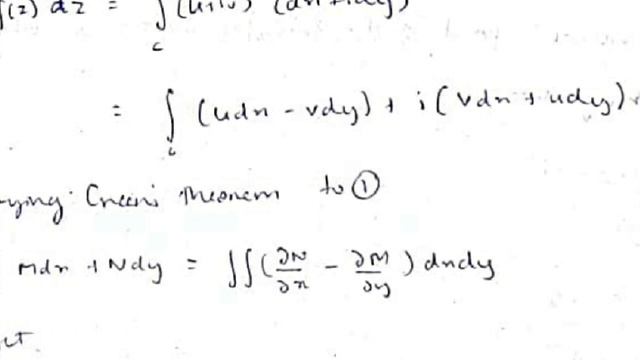 f(z) dz = ∫c (u+iv) (dx+idy)
= ∫c (udx - vdy) + i(vdx + udy).
ying Green's theorem to ①
Mdx + Ndy = ∬(∂N/∂x - ∂M/∂y) dxdy